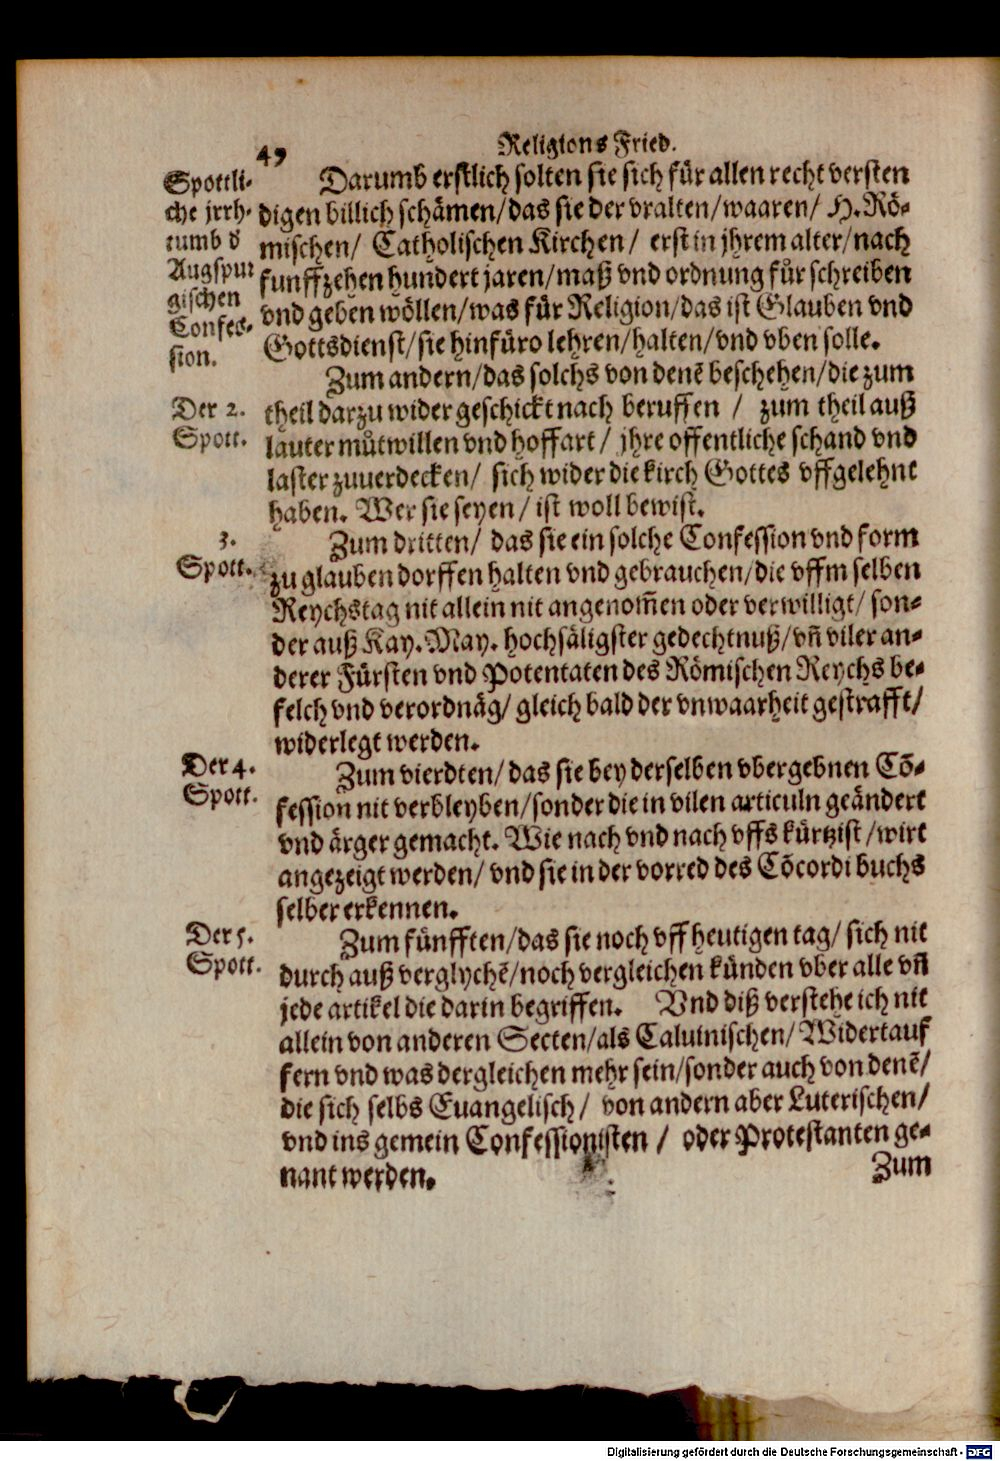 49 Religions Fried.
Spottli-
che jrrh-
tumb d'
Augspur
gischen
Confes-
sion.
Darumb erstlich solten sie sich für allen recht versten
digen billich schämen/das sie der vralten/waaren/ H. Rö-
mischen/ Catholischen Kirchen/ erst in jhrem alter/nach
funffzehen hundert jaren/maß vnd ordnung fůr schreiben
vnd geben wöllen/was für Religion/das ist Glauben vnd
Gottsdienst/sie hinfüro lehren/halten/vnd vben solle.
Der 2.
Spott.
Zum andern/das solchs von denē beschehen/die zum
theil darzu wider geschickt nach beruffen / zum theil auß
lauter můtwillen vnd hoffart/ jhre offentliche schand vnd
laster zuuerdecken/ sich wider die kirch Gottes vffgelehnt
haben. Wer sie seyen/ ist woll bewist.
3.
Spott.
Zum dritten/ das sie ein solche Confession vnd form
zu glauben dorffen halten vnd gebrauchen/die vffm selben
Reychstag nit allein nit angenom̄en oder verwilligt/ son-
der auß Kay. May. hochsäligster gedechtnuß/vn̄ viler an-
derer Fürsten vnd Potentaten des Römischen Reychs be-
felch vnd verordnäg/ gleich bald der vnwaarheit gestrafft/
widerlegt werden.
Der 4.
Spott.
Zum vierdten/das sie bey derselben vbergebnen Cō-
fession nit verbleyben/sonder die in vilen articuln geändert
vnd ärger gemacht. Wie nach vnd nach vffs kürtzist/wirt
angezeigt werden/ vnd sie in der vorred des Cōcordi buchs
selber erkennen.
Der 5.
Spott.
Zum fünfften/das sie noch vff heutigen tag/ sich nit
durch auß verglychē/noch vergleichen künden vber alle vn̄
jede artikel die darin begriffen. Vnd diß verstehe ich nit
allein von anderen Secten/als Caluinischen/ Widertauf
fern vnd was dergleichen mehr sein/sonder auch von denē/
die sich selbs Euangelisch/ von andern aber Luterischen/
vnd ins gemein Confessionisten / oder Protestanten ge-
nant werden.
Zum
Digitalisierung gefördert durch die Deutsche Forschungsgemeinschaft - DFG